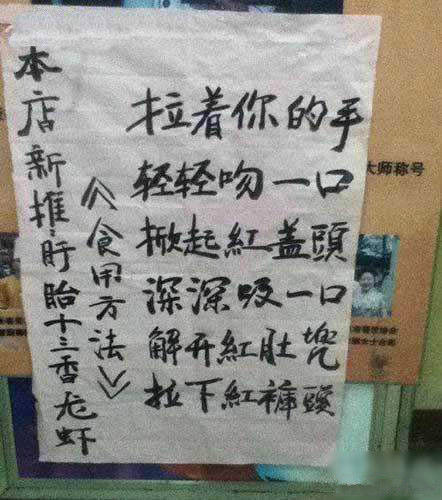 本店新推:盱眙十三香龙虾
《食用方法》
拉着你的手
轻轻吻一口
掀起紅盖頭
深深吸一口
解开紅肚兜
拉下紅褲頭
大师称号